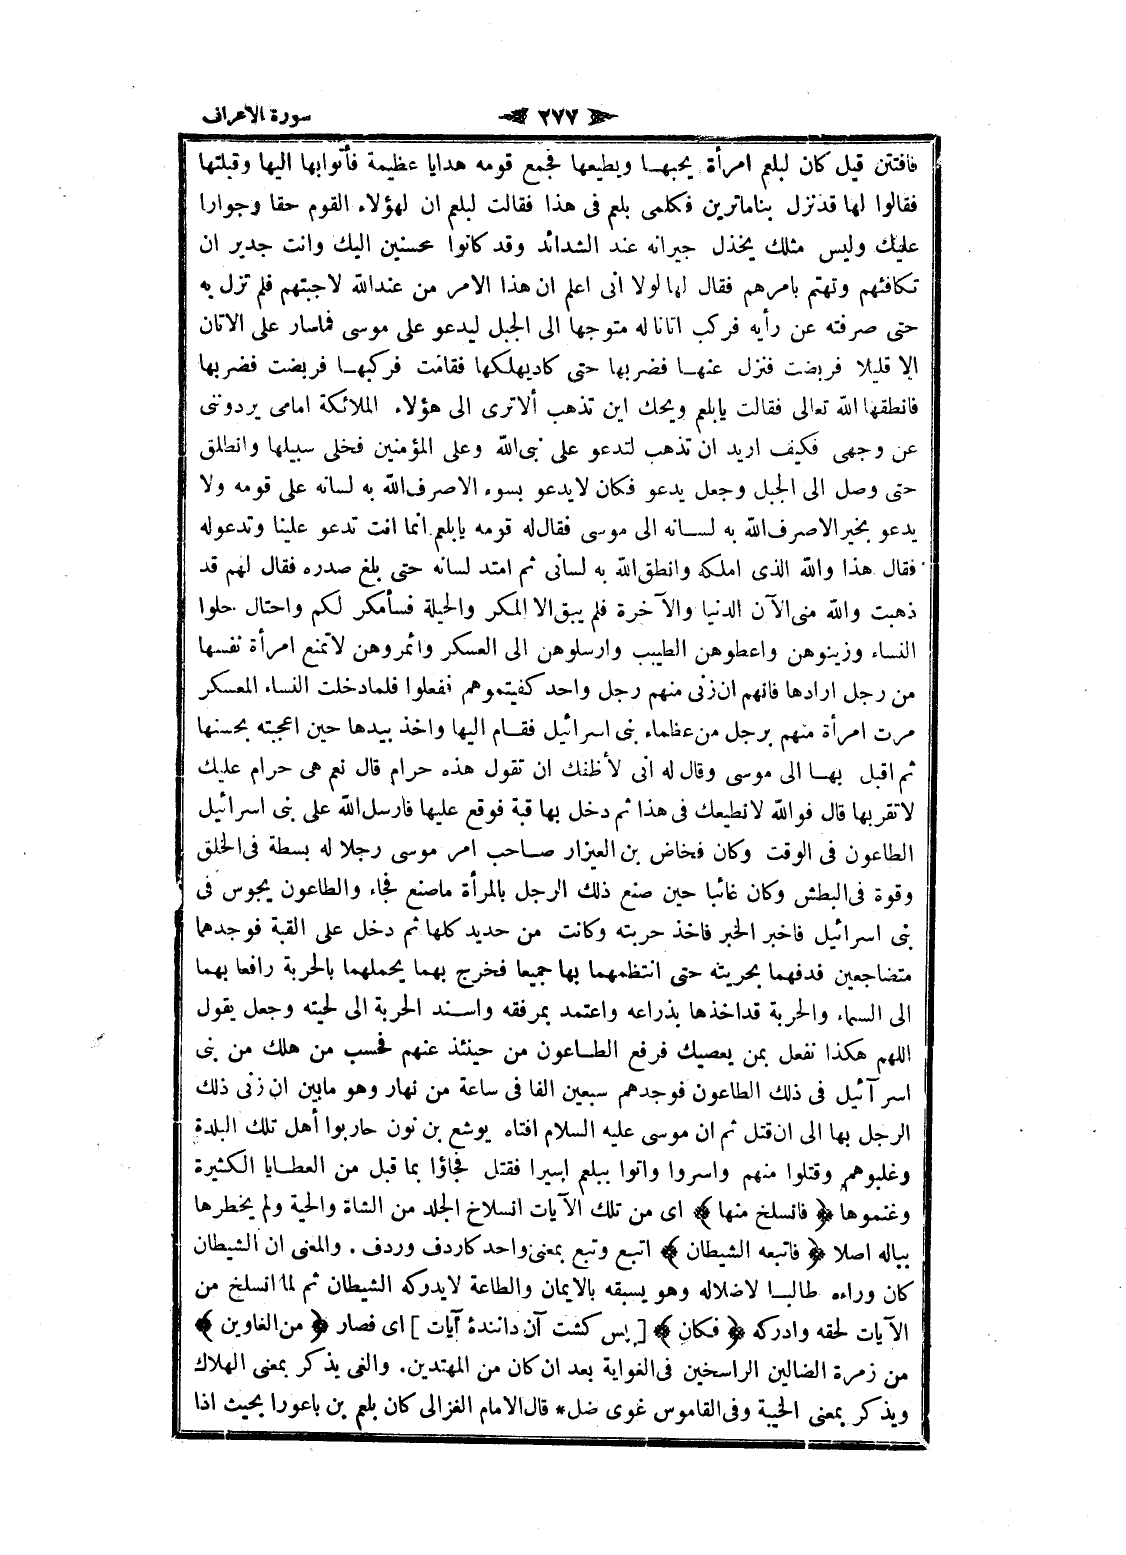 سورة الاعراف ﴿ ٢٧٧ ﴾
فافتتن قيل كان لبلعم امرأة يحبهـا ويطيعها فجمع قومه هدايا عظيمة فأتوابها اليها وقبلتها
فقالوا لها قدنزل بناماترين فكلمى بلعم فى هذا فقالت لبلعم ان لهؤلاء القوم حقا وجوارا
عليك وليس مثلك يخذل جيرانه عند الشدائد وقد كانوا محسنين اليك وانت جدير ان
تكافئهم وتهتم بامرهم فقال لها لولا انى اعلم ان هذا الامر من عندالله لاجبتهم فلم تزل به
حتى صرفته عن رأيه فركب اتانا له متوجها الى الجبل ليدعو على موسى فماسار على الاتان
الا قليلا فربضت فنزل عنهـا فضربها حتى كاديهلكها فقامت فركبهـا فربضت فضربها
فانطقها الله تعالى فقالت يابلعم ويحك اين تذهب ألاترى الى هؤلاء الملائكة امامى يردوننى
عن وجهى فكيف اريد ان تذهب لتدعو على نبى الله وعلى المؤمنين فخلى سبيلها وانطلق
حتى وصل الى الجبل وجعل يدعو فكان لايدعو بسوء الاصرف الله به لسانه على قومه ولا
يدعو بخير الاصرف الله به لسـانه الى موسى فقال له قومه يابلعم انما انت تدعو علينا وتدعوله
فقال هذا والله الذى املكه وانطق الله به لسانى ثم امتد لسانه حتى بلغ صدره فقال لهم قد
ذهبت والله منى الآن الدنيا والآخرة فلم يبق الا المكر والحيلة فسأمكر لكم واحتال حلوا
النساء وزينوهن واعطوهن الطيب وارسلوهن الى العسكر وائمروهن لاتمنع امرأة نفسها
من رجل ارادها فانهم ان زنى منهم رجل واحد كفيتموهم ففعلوا فلمادخلت النساء المعسكر
مرت امرأة منهم برجل من عظماء بنى اسرائيل فقـام اليها واخذ بيدها حين اعجبته بحسنها
ثم اقبل بهـا الى موسى وقال له انى لأظنك ان تقول هذه حرام قال نعم هى حرام عليك
لاتقربها قال فوالله لانطيعك فى هذا ثم دخل بها قبة فوقع عليها فارسل الله على بنى اسرائيل
الطاعون فى الوقت وكان فخاض بن العيزار صـاحب امر موسى رجلا له بسطة فى الخلق
وقوة فى البطش وكان غائبا حين صنع ذلك الرجل بالمرأة ماصنع فجاء والطاعون يجوس فى
بنى اسرائيل فاخبر الخبر فاخذ حربته وكانت من حديد كلها ثم دخل على القبة فوجدهما
متضاجعين فدفهما بحربته حتى انتظمهما بها جميعا فخرج بهما يحملهما بالحربة رافعا بهما
الى السماء والحربة قداخذها بذراعه واعتمد بمرفقه واسـند الحربة الى لحيته وجعل يقول
اللهم هكذا نفعل بمن يعصيك فرفع الطـاعون من حينئذ عنهم فحسب من هلك من بنى
اسرآئيل فى ذلك الطاعون فوجدهم سبعين الفا فى ساعة من نهار وهو مابين ان زنى ذلك
الرجل بها الى ان قتل ثم ان موسى عليه السلام افتاه يوشع بن نون حاربوا أهل تلك البلدة
وغلبوهم وقتلوا منهم واسروا واتوا ببلعم اسيرا فقتل فجاؤا بما قبل من العطـايا الكثيرة
وغنموها ﴿ فانسلخ منها ﴾ اى من تلك الآيات انسلاخ الجلد من الشاة والحية ولم يخطرها
بباله اصلا ﴿ فاتبعه الشيطان ﴾ اتبع وتبع بمعنى واحد كاردف وردف . والمعنى ان الشيطان
كان وراءه طالبـا لاضلاله وهو يسبقه بالايمان والطاعة لايدركه الشيطان ثم لما انسلخ من
الآيات لحقه وادركه ﴿ فكان ﴾ [ پس كشت آن دانندۀ آيات ] اى فصار ﴿ من الغاوين ﴾
من زمرة الضالين الراسخين فى الغواية بعد ان كان من المهتدين. والغى يذكر بمعنى الهلاك
ويذكر بمعنى الخيبة وفى القاموس غوى ضل * قال الامام الغزالى كان بلعم بن باعورا بحيث اذا